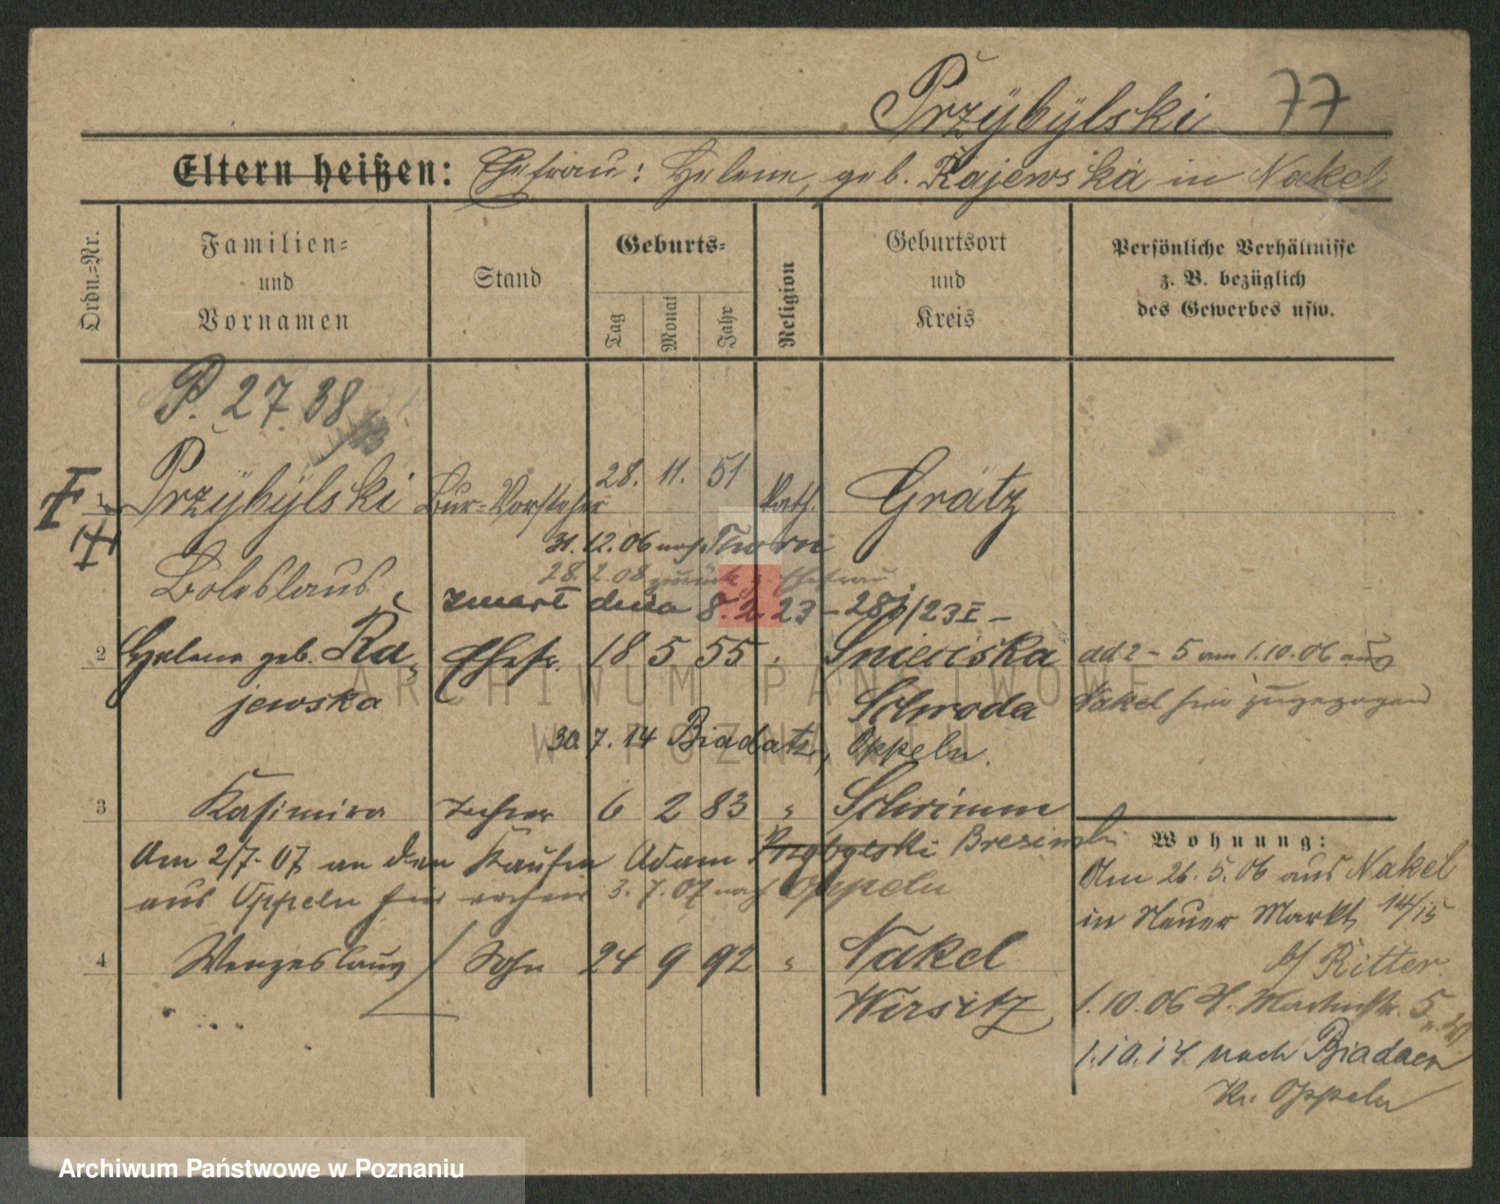 Przÿbÿlski 77
Eltern heißen: Ehefrau: Helene, geb. Rajewska in Nakel
Ordn.-Nr.
Familien-
und
Vornamen
Stand
Geburts-
Tag
Monat
Jahr
Religion
Geburtsort
und
Kreis
Persönliche Verhältnisse
z. B. bezüglich
des Gewerbes usw.
P. 27 38
1 Przÿbÿlski Bur-Vorsteher 28. 11. 51 kath. Grätz
31.12.06 nach Thorn
Boleslaus
28.2.08 zurück z. Ehefrau
8.2.23 - 28
2 Helene geb. Ra- Ehefr. 18 5 55 " Snieciska
jewska Schroda
ad 2 - 5 am 1.10.06 aus
Nakel hier zugezogen
30 7. 14 Biadatz, Oppeln.
3 Kasimira Tochter 6 2 83 " Schrimm
Am 2/7. 07 an den Kaufm Adam Przybylski Bresinski
aus Oppeln hier 3. 7. 07 nach Oppeln
4 Wenzeslaus Sohn 24 9 92 " Nakel
Wirsitz
Wohnung:
Am 26. 5. 06 aus Nakel
in Neuer Markt 14/15
b/ Ritter.
1.10.06 St. Martinstr. 5
1.10.14 nach Biadacz
Kr. Oppeln
ARCHIWUM PAŃSTWOWE
W POZNANIU
Archiwum Państwowe w Poznaniu